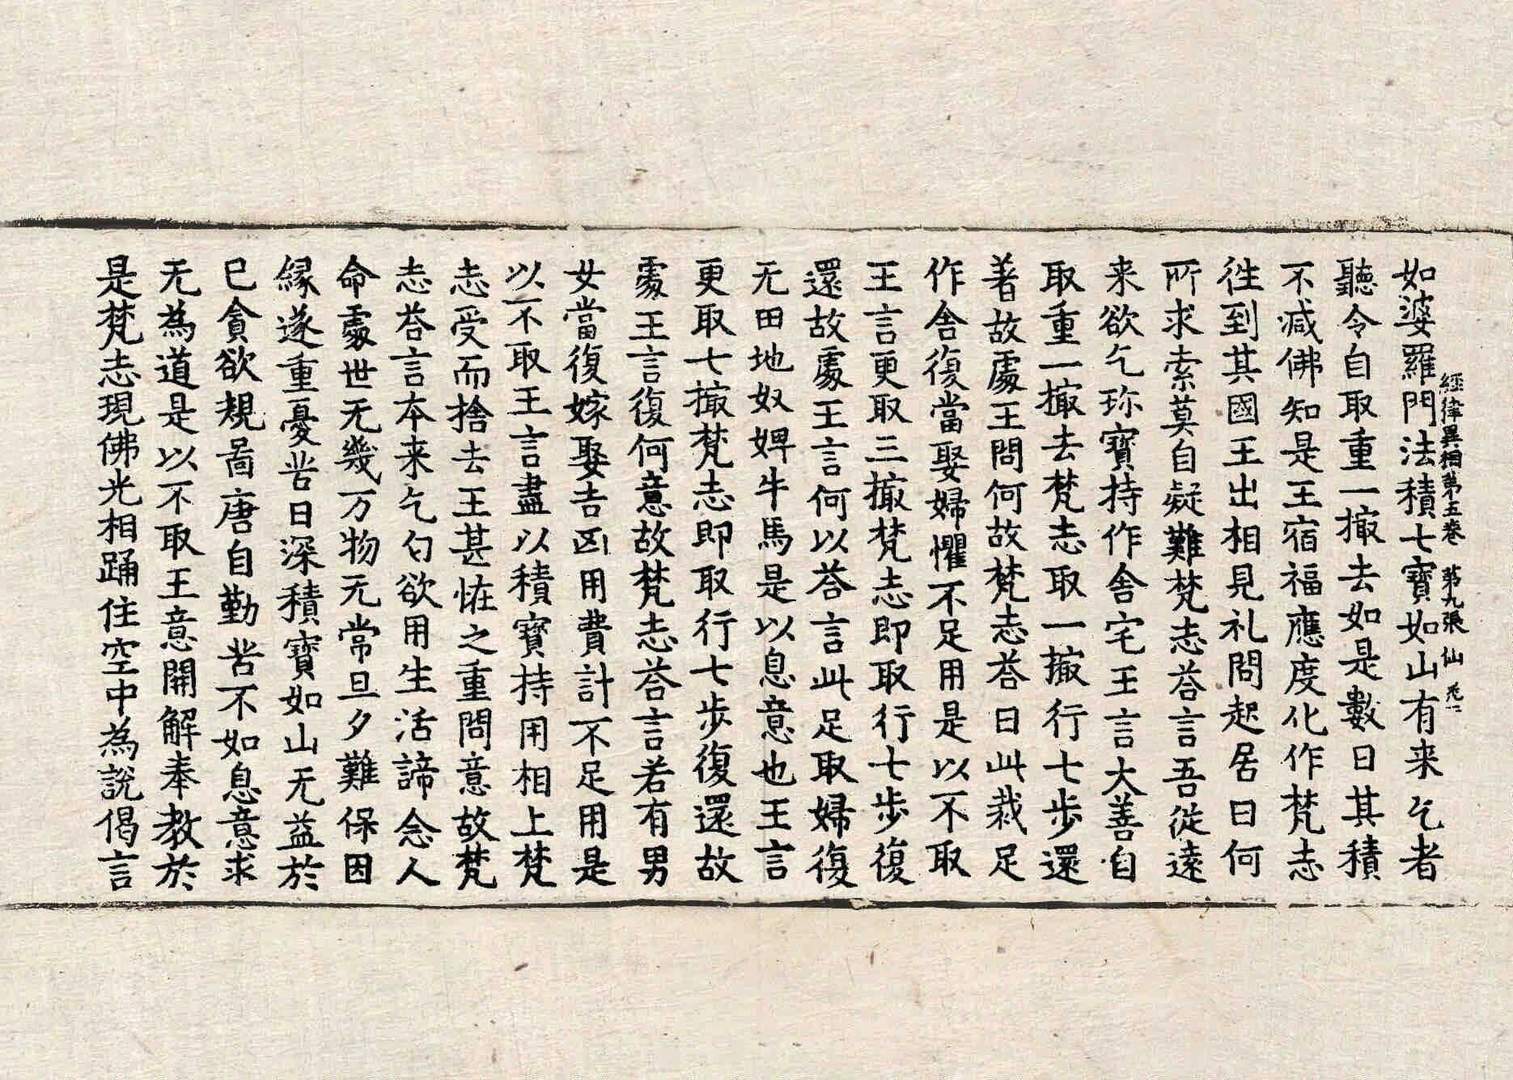 如婆羅門法積七寶如山有来乞者
經律異相第五卷　第九張　仙
聽令自取重一撮去如是數日其積
不減佛知是王宿福應度化作梵志
徃到其國王出相見礼問起居曰何
所求索莫自疑難梵志荅言吾從遠
来欲乞珎寶持作舍宅王言大善自
取重一撮去梵志取一撮行七步還
著故處王問何故梵志荅曰此裁足
作舍復當娶婦懼不足用是以不取
王言更取三撮梵志即取行七步復
還故處王言何以荅言此足取婦復
无田地奴婢牛馬是以息意也王言
更取七撮梵志即取行七步復還故
處王言復何意故梵志荅言若有男
女當復嫁娶吉凶用費計不足用是
以不取王言盡以積寶持用相上梵
志受而捨去王甚怪之重問意故梵
志荅言本来乞匃欲用生活諦念人
命處世无幾万物无常旦夕難保因
緣遂重憂苦日深積寶如山无益於
已貪欲規啚唐自勤苦不如息意求
无為道是以不取王意開解奉教於
是梵志現佛光相踊住空中為說偈言